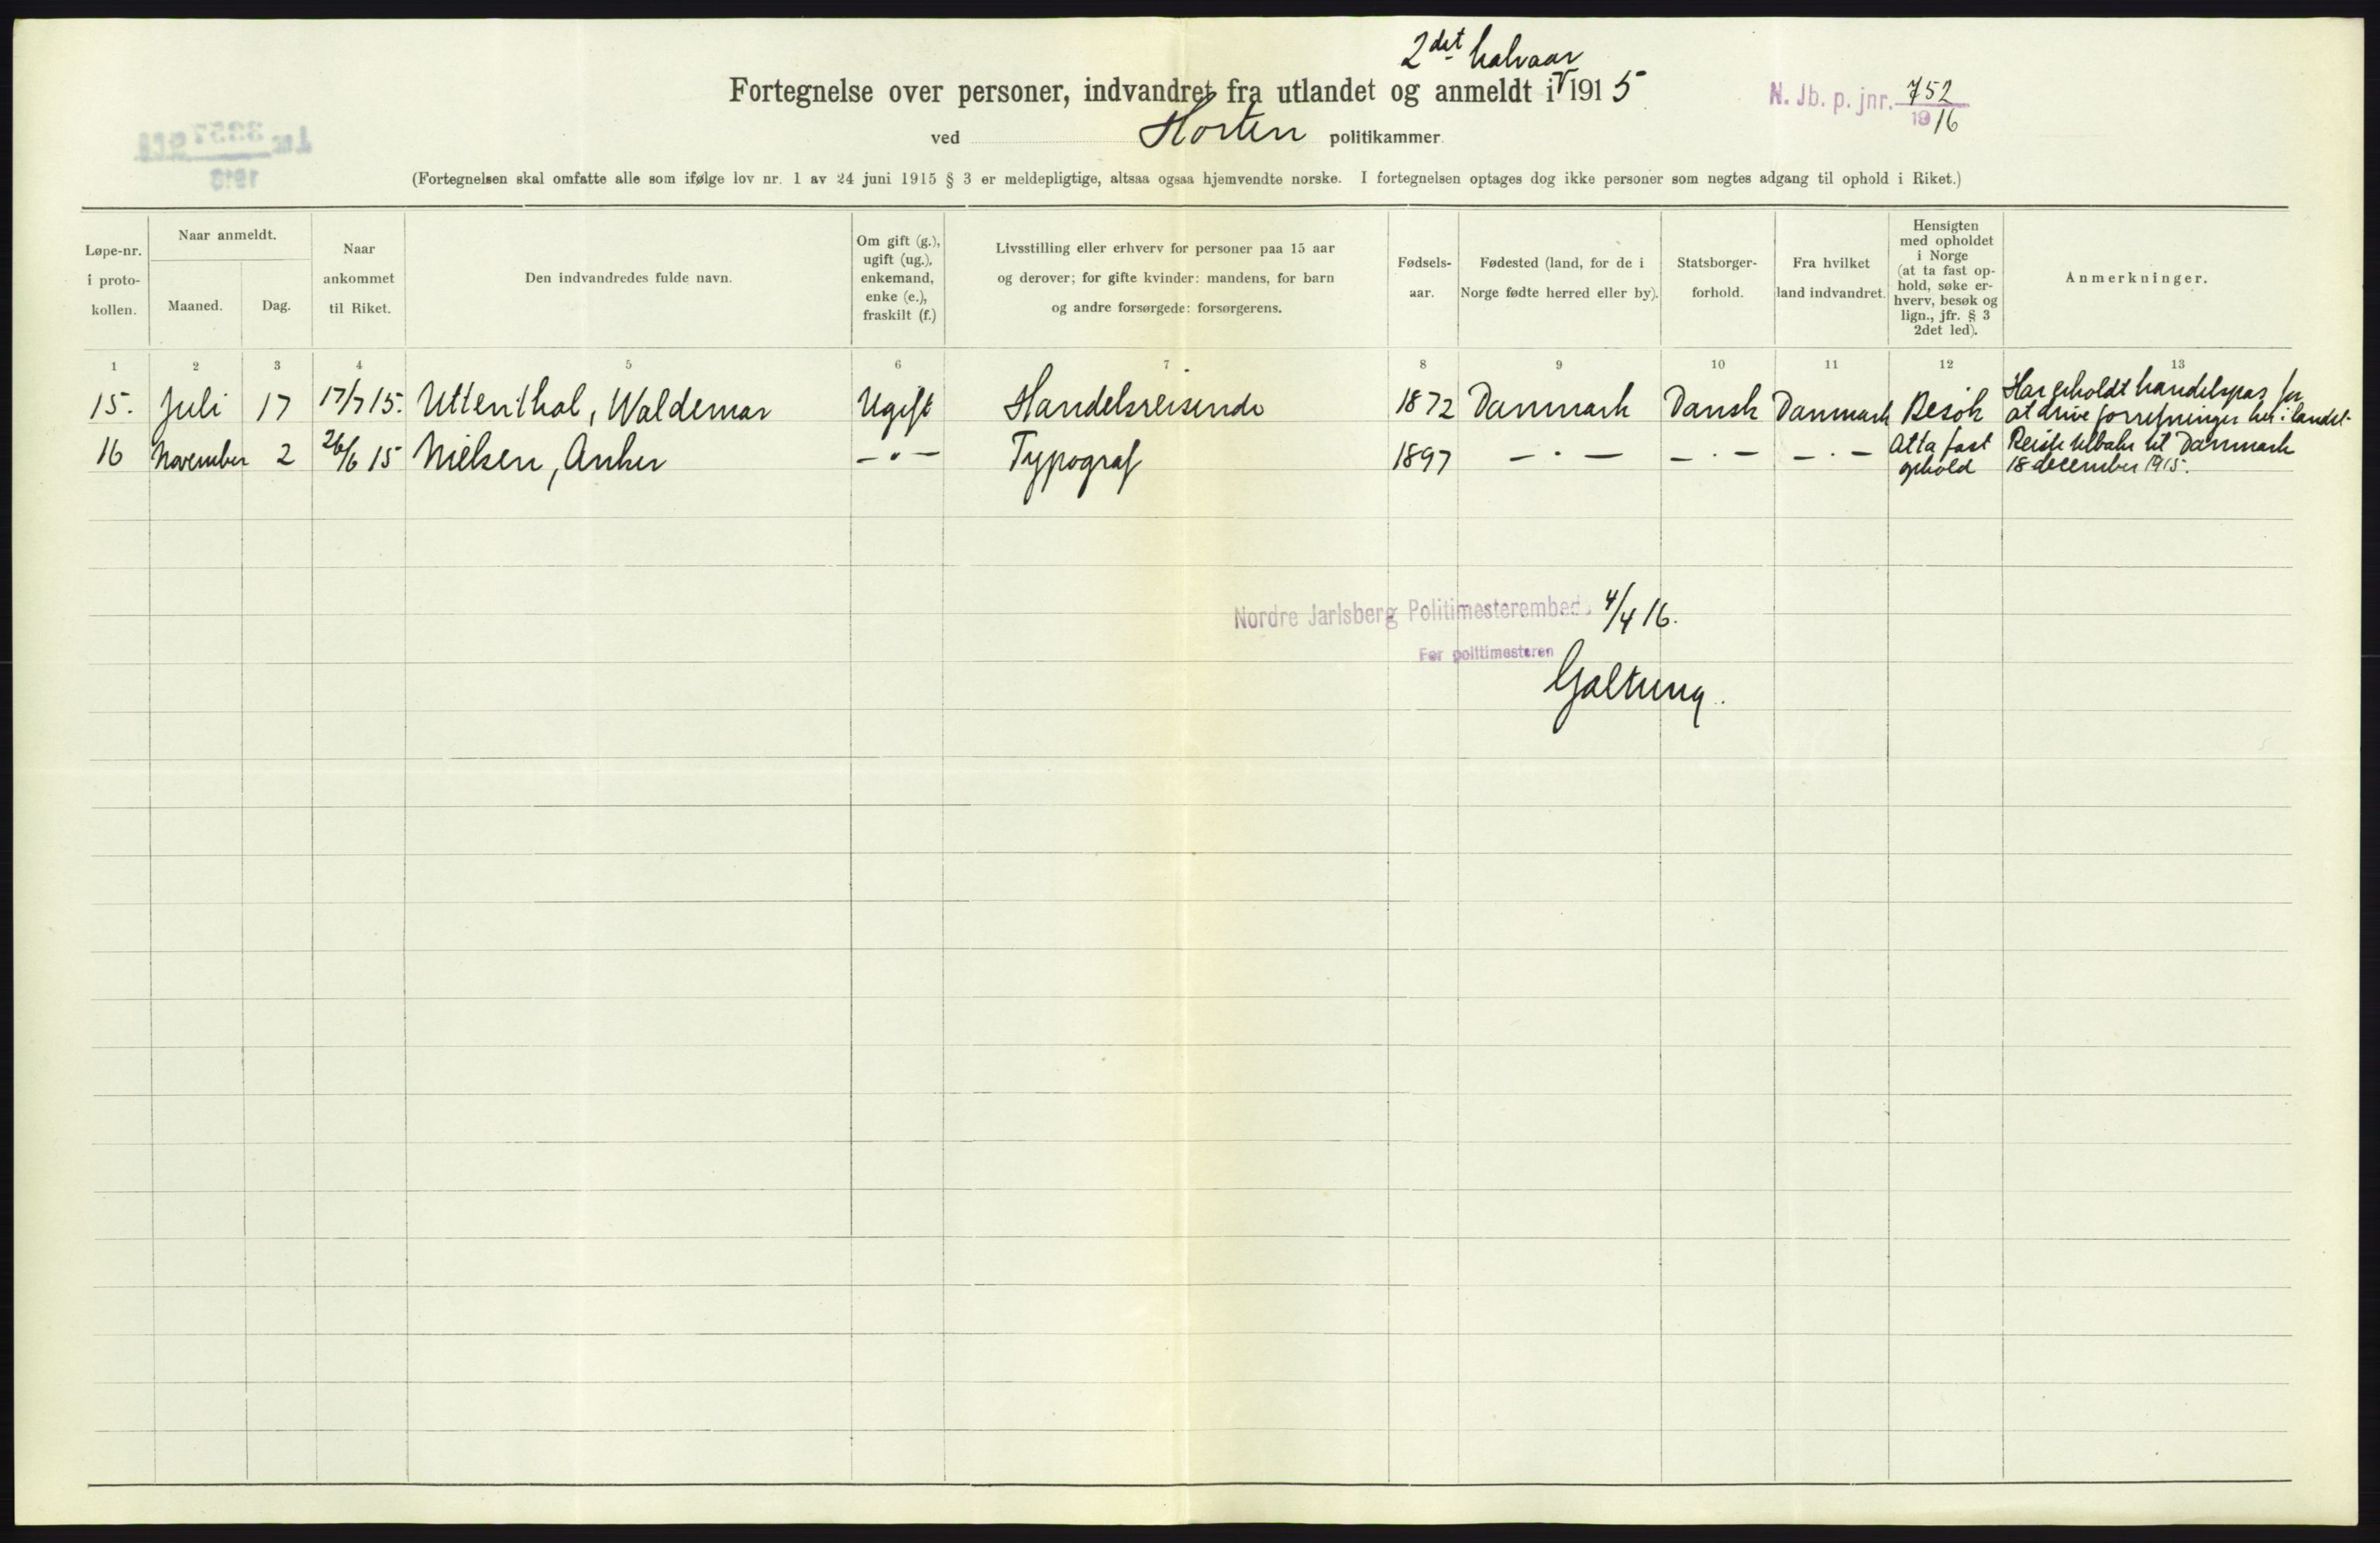 2det halvaar
Fortegnelse over personer, indvandret fra utlandet og anmeldt i 1915
N. Jb. p. jnr. 752
1916
ved Horten politikammer.
(Fortegnelsen skal omfatte alle som ifølge lov nr. 1 av 24 juni 1915 § 3 er meldepligtige, altsaa ogsaa hjemvendte norske. I fortegnelsen optages dog ikke personer som negtes adgang til ophold i Riket.)
Løpe-nr.
i proto-
kollen.
Naar anmeldt.
Maaned.
Dag.
Naar
ankommet
til Riket.
Den indvandredes fulde navn.
Om gift (g.),
ugift (ug.),
enkemand,
enke (e.),
fraskilt (f.)
Livsstilling eller erhverv for personer paa 15 aar
og derover; for gifte kvinder: mandens, for barn
og andre forsørgede: forsørgerens.
Fødsels-
aar.
Fødested (land, for de i
Norge fødte herred eller by).
Statsborger-
forhold.
Fra hvilket
land indvandret.
Hensigten
med opholdet
i Norge
(at ta fast op-
hold, søke er-
hverv, besøk og
lign., jfr. § 3
2det led).
Anmerkninger.
1 2 3 4 5 6 7 8 9 10 11 12 13
15. Juli 17 17/7 15. Uttenthal, Waldemar Ugift Handelsreisende 1872 Danmark Dansk Danmark Besøk Har erholdt handelspas for
at drive forretninger her i landet.
16 November 2 26/6 15 Nielsen, Anker — " — Typograf 1897 — " — — " — — " — At ta fast
ophold
Reiste tilbake til Danmark
18 december 1915.
Nordre Jarlsberg Politimesterembede 4/4 16.
For politimesteren
Galtung.